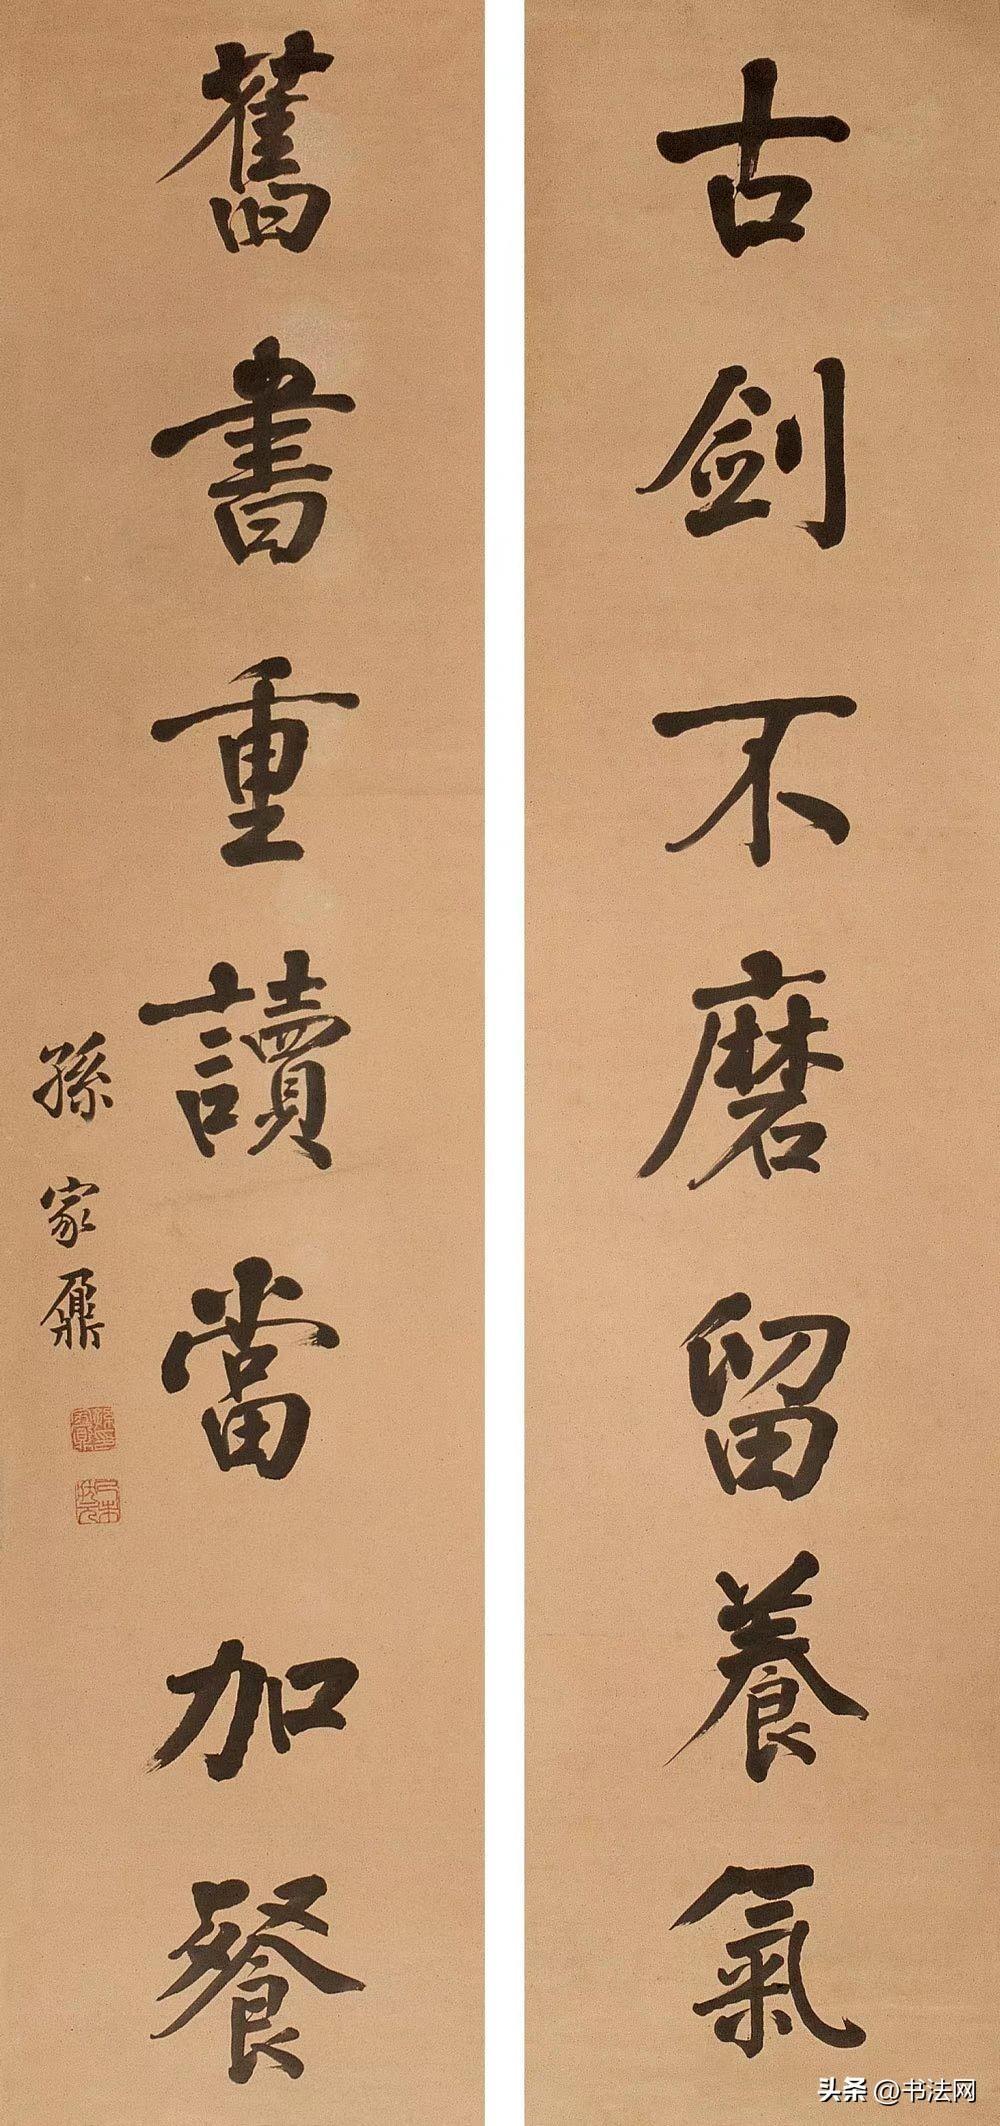 古劍不磨留養氣
舊書重讀當加餐
孫家鼐
头条 @书法网